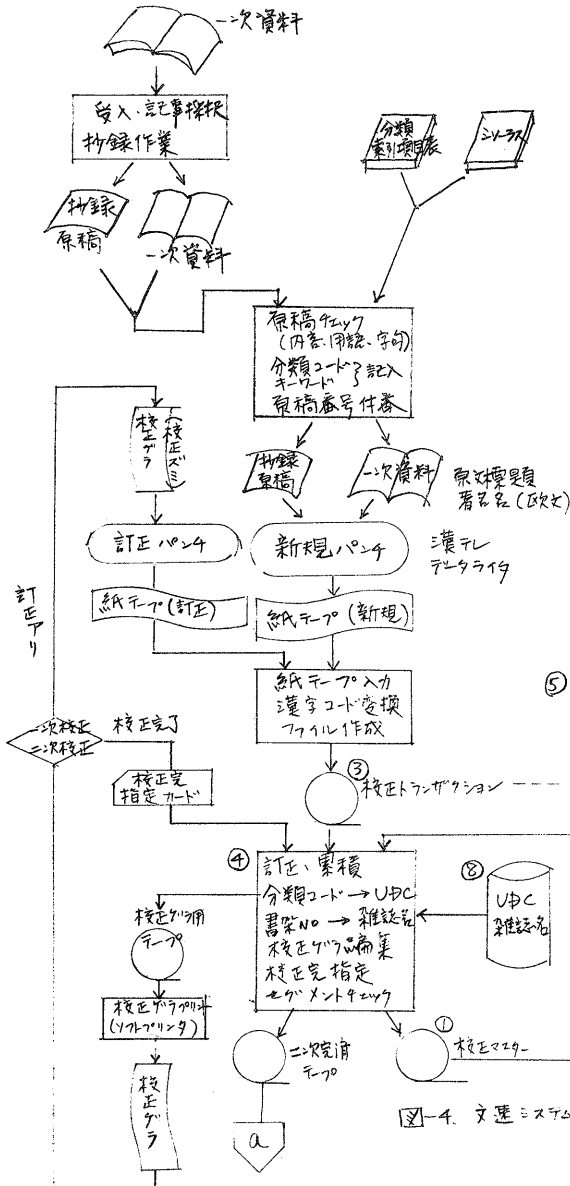 一次資料
受入・記事採択
抄録作業
分類
索引項目表
シソーラス
抄録
原稿
一次資料
原稿チェック
(内容、用語、字句)
分類コード
キーワード
記入
原稿番号付番
校正ゲラ
(校正ズミ)
抄録
原稿
一次資料
原文標題
著者名(欧文)
訂正パンチ
新規パンチ
漢テレ
データライタ
紙テープ(訂正)
紙テープ(新規)
訂正アリ
紙テープ入力
漢字コード変換
ファイル作成
⑤
一次校正
二次校正
校正完了
校正完
指定カード
③
校正トランザクション
④
訂正、累積
分類コード→UDC
書架NO→雑誌名
校正ゲラ編集
校正完指定
セグメントチェック
⑧
UDC
雑誌名
校正ゲラ用
テープ
校正ゲラプリント
(ソフトプリンタ)
校正ゲラ
二次完済
テープ
①
校正マスター
a
図-4. 文速システム